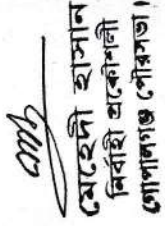 মেহেদী হাসান
নির্বাহী প্রকৌশলী
গোপালগঞ্জ পৌরসভা।